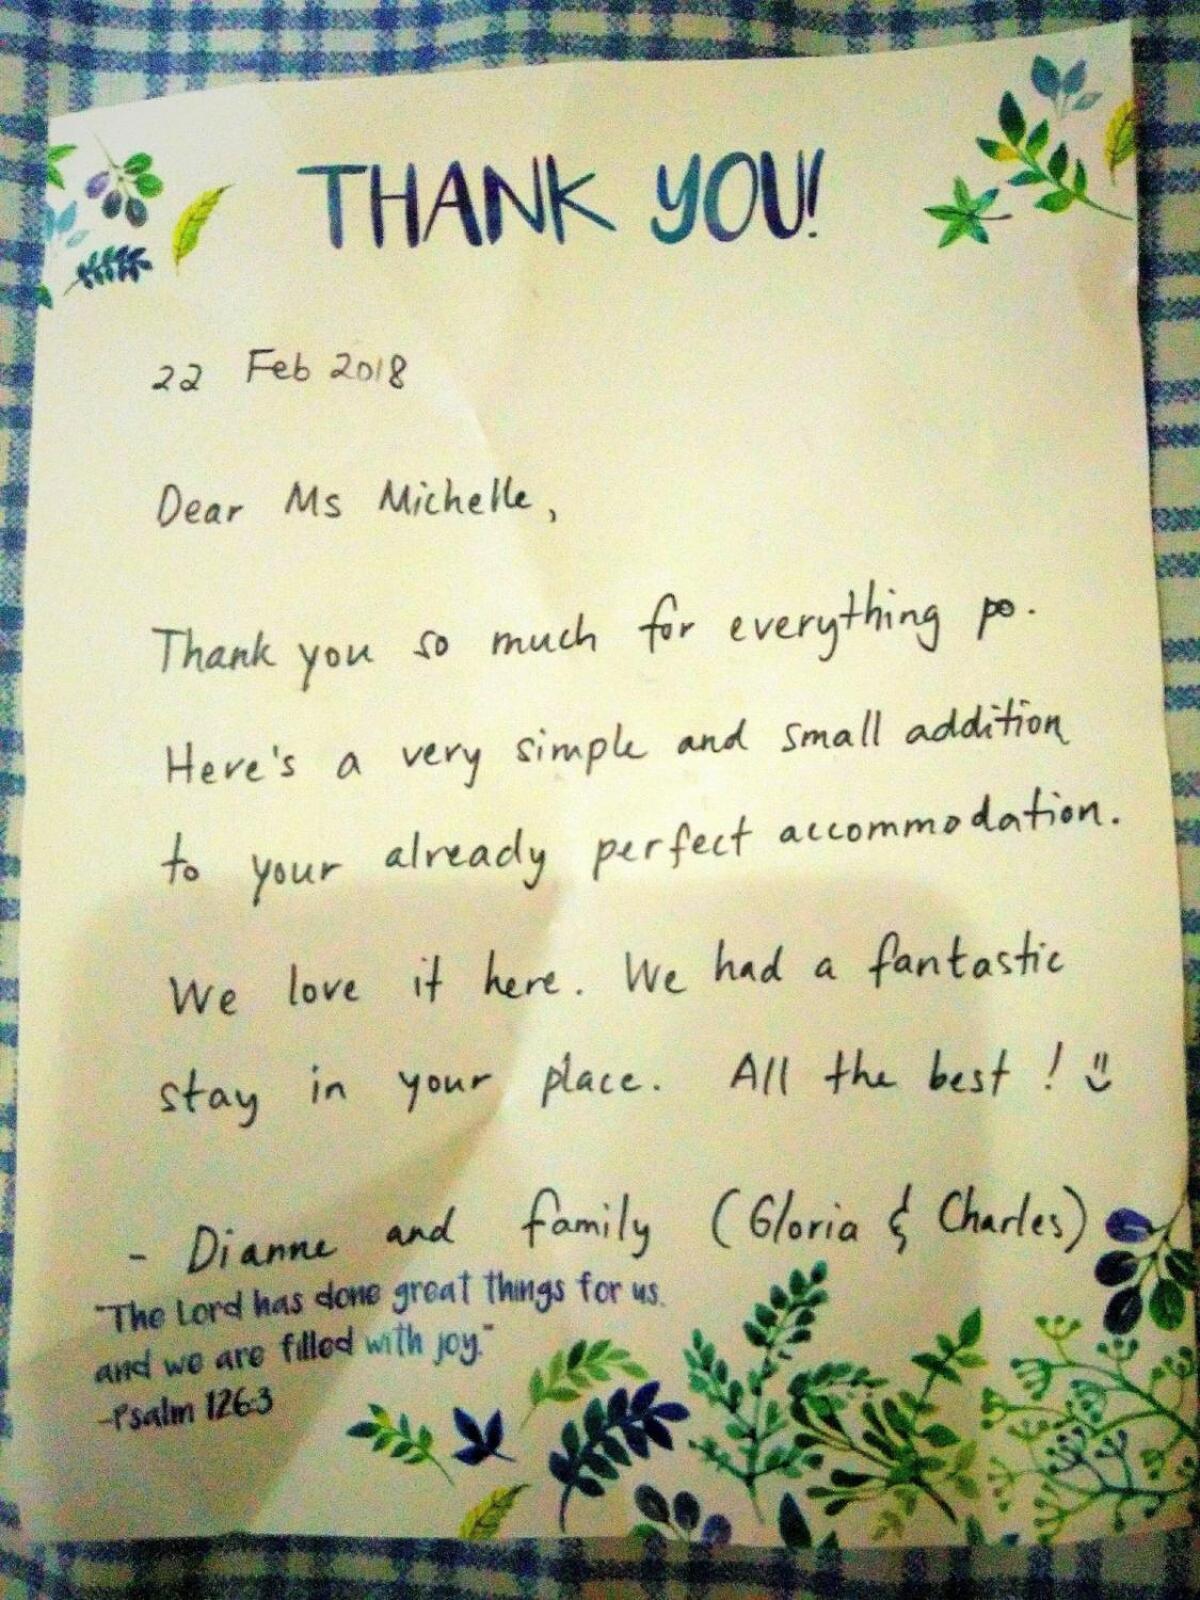 THANK YOU!
22 Feb 2018
Dear Ms Michelle,
Thank you so much for everything po.
Here's a very simple and small addition
to your already perfect accommodation.
We love it here. We had a fantastic
stay in your place. All the best ! :)
- Dianne and family (Gloria & Charles)
"The Lord has done great things for us,
and we are filled with joy."
-Psalm 126:3